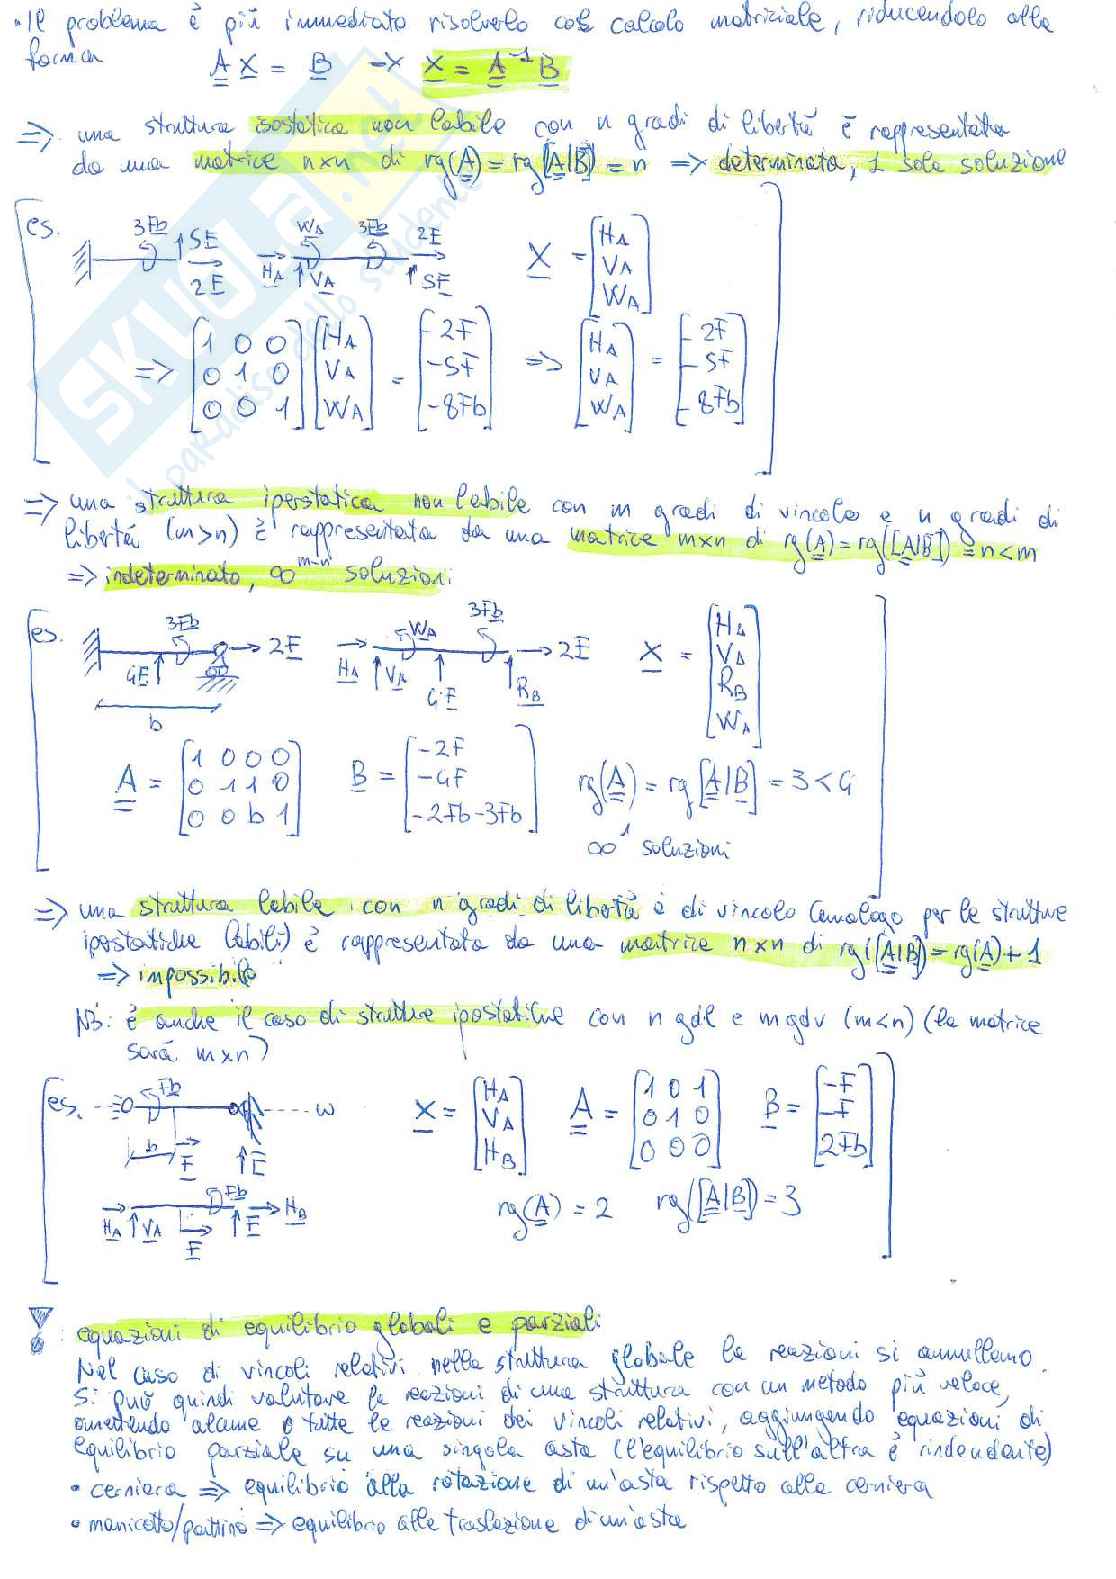 • Il problema è più immediato risolverlo col calcolo matriziale, riducendolo alla
forma A X = B → X = A⁻¹ B
⇒ una struttura isostatica non labile con n gradi di libertà è rappresentata
da una matrice n×n di rg(A) = rg[A|B] = n ⇒ determinata, 1 sola soluzione
es. 3Fb 5F 2F H_A W_A V_A 3Fb 2F 5F X = [H_A V_A W_A]
⇒ [1 0 0; 0 1 0; 0 0 1] [H_A V_A W_A] = [-2F -5F -8Fb] ⇒ [H_A V_A W_A] = [-2F -5F -8Fb]
⇒ una struttura iperstatica non labile con m gradi di vincolo e n gradi di
libertà (m>n) è rappresentata da una matrice m×n di rg(A) = rg([A|B]) = n < m
⇒ indeterminato, ∞^(m-n) soluzioni
es. 3Fb 2F 4F b H_A V_A W_A 4F 3Fb 2F R_B X = [H_A V_A R_B W_A]
A = [1 0 0 0; 0 1 1 0; 0 0 b 1] B = [-2F -4F -2Fb-3Fb] rg(A) = rg[A|B] = 3 < 4
∞¹ soluzioni
⇒ una struttura labile con n gradi di libertà e di vincolo (analogo per le strutture
ipostatiche labili) è rappresentata da una matrice n×n di rg([A|B]) = rg(A)+1
⇒ impossibile
NB: è anche il caso di strutture ipostatiche con n gdl e m gdv (m<n) (la matrice
sarà m×n)
es. Fb w b F F X = [H_A V_A H_B] A = [1 0 1; 0 1 0; 0 0 0] B = [-F -F 2Fb]
H_A V_A F Fb F H_B rg(A) = 2 rg([A|B]) = 3
: equazioni di equilibrio globali e parziali
Nel caso di vincoli relativi nella struttura globale le reazioni si annullano.
Si può quindi valutare le reazioni di una struttura con un metodo più veloce,
omettendo alcune o tutte le reazioni dei vincoli relativi, aggiungendo equazioni di
equilibrio parziale su una singola asta (l'equilibrio sull'altra è rindondante)
• cerniera ⇒ equilibrio alla rotazione di un'asta rispetto alla cerniera
• manicotto/pattino ⇒ equilibrio alla traslazione di un'asta